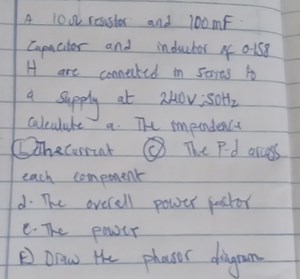 A 10Ω resistor and 100mF
Capacitor and inductor of 0.158
H are connected in series to
a supply at 240V;50Hz
Calculate a. The impendence
(b) The current (c) The P.d across
each component
d. The overall power factor
e. The power
F) Draw the phasor diagram